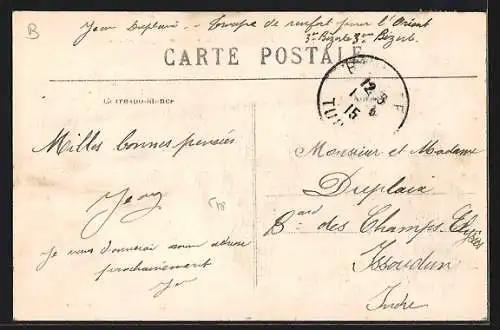 B
Jean Duplaix - Troupe de renfort pour l'Orient
3e Bizerte 3e Bizerte
CARTE POSTALE
12-3
15
TU
Correspondance
Milles bonnes pensées
Jean
Je vous donnerai mon adresse
prochainement
Monsieur et Madame
Duplaix
Bard des Champs-Elysées
Issoudun
Indre